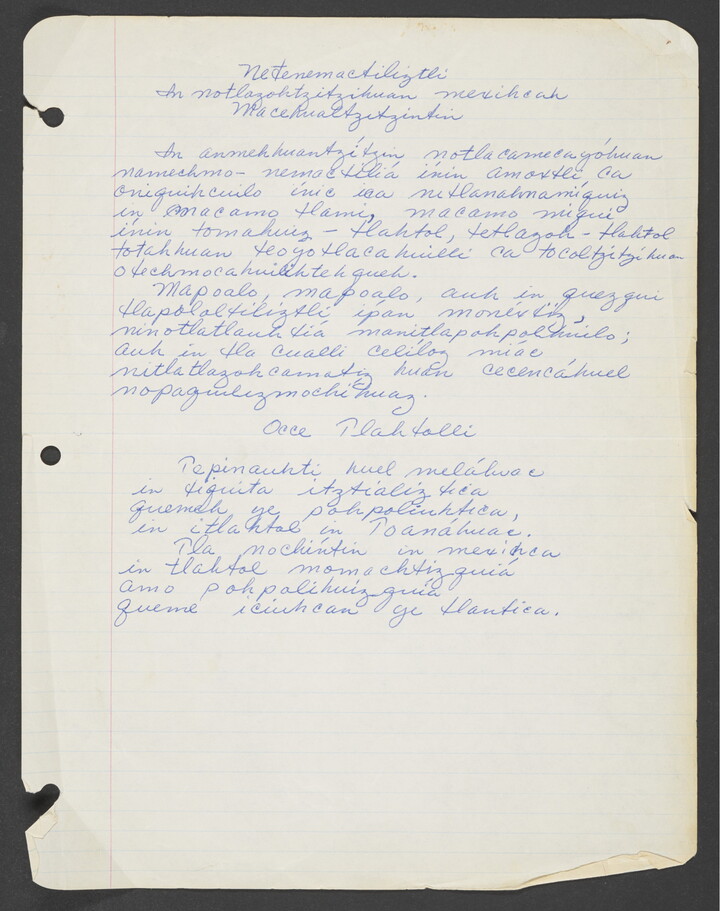 Netenemactiliztli
In notlazohtzitzihuan mexihcah
Macehualtzitzintin
In anmehhuantzítzin notlacamecayóhuan
namechmo-nemactilia ínin amoxtli ca
oniquihcuilo ínic ica netlanahnamíquiz
in macamo tlami, macamo miqui
ínin tomahuiz-tlahtol, tetlazoh-tlahtol
totahhuan teoyotlacahuilli ca tocoltzitzihuan
otechmocahuilihtehqueh.
Mapoalo, mapoalo, auh in quezqui
tlapololtiliztli ipan monéxtiz,
ninotlatlauhtiá manitlapohpolihuilo;
auh in tla cualli celíloz miác
nitlatlazohcamatiz huan cecencáhuel
nopaquilizmochihuaz.
Occe Tlahtolli
Tepinauhti huel meláhuac
in tiquíta itztializtica
quemeh ye pohpoliuhtica,
in itlahtol in Toanáhuac.
Tla nochíntin in mexihca
in tlahtol momachtizquiá
amo pohpolihuízquía
queme iciuhcan ye tlantica.